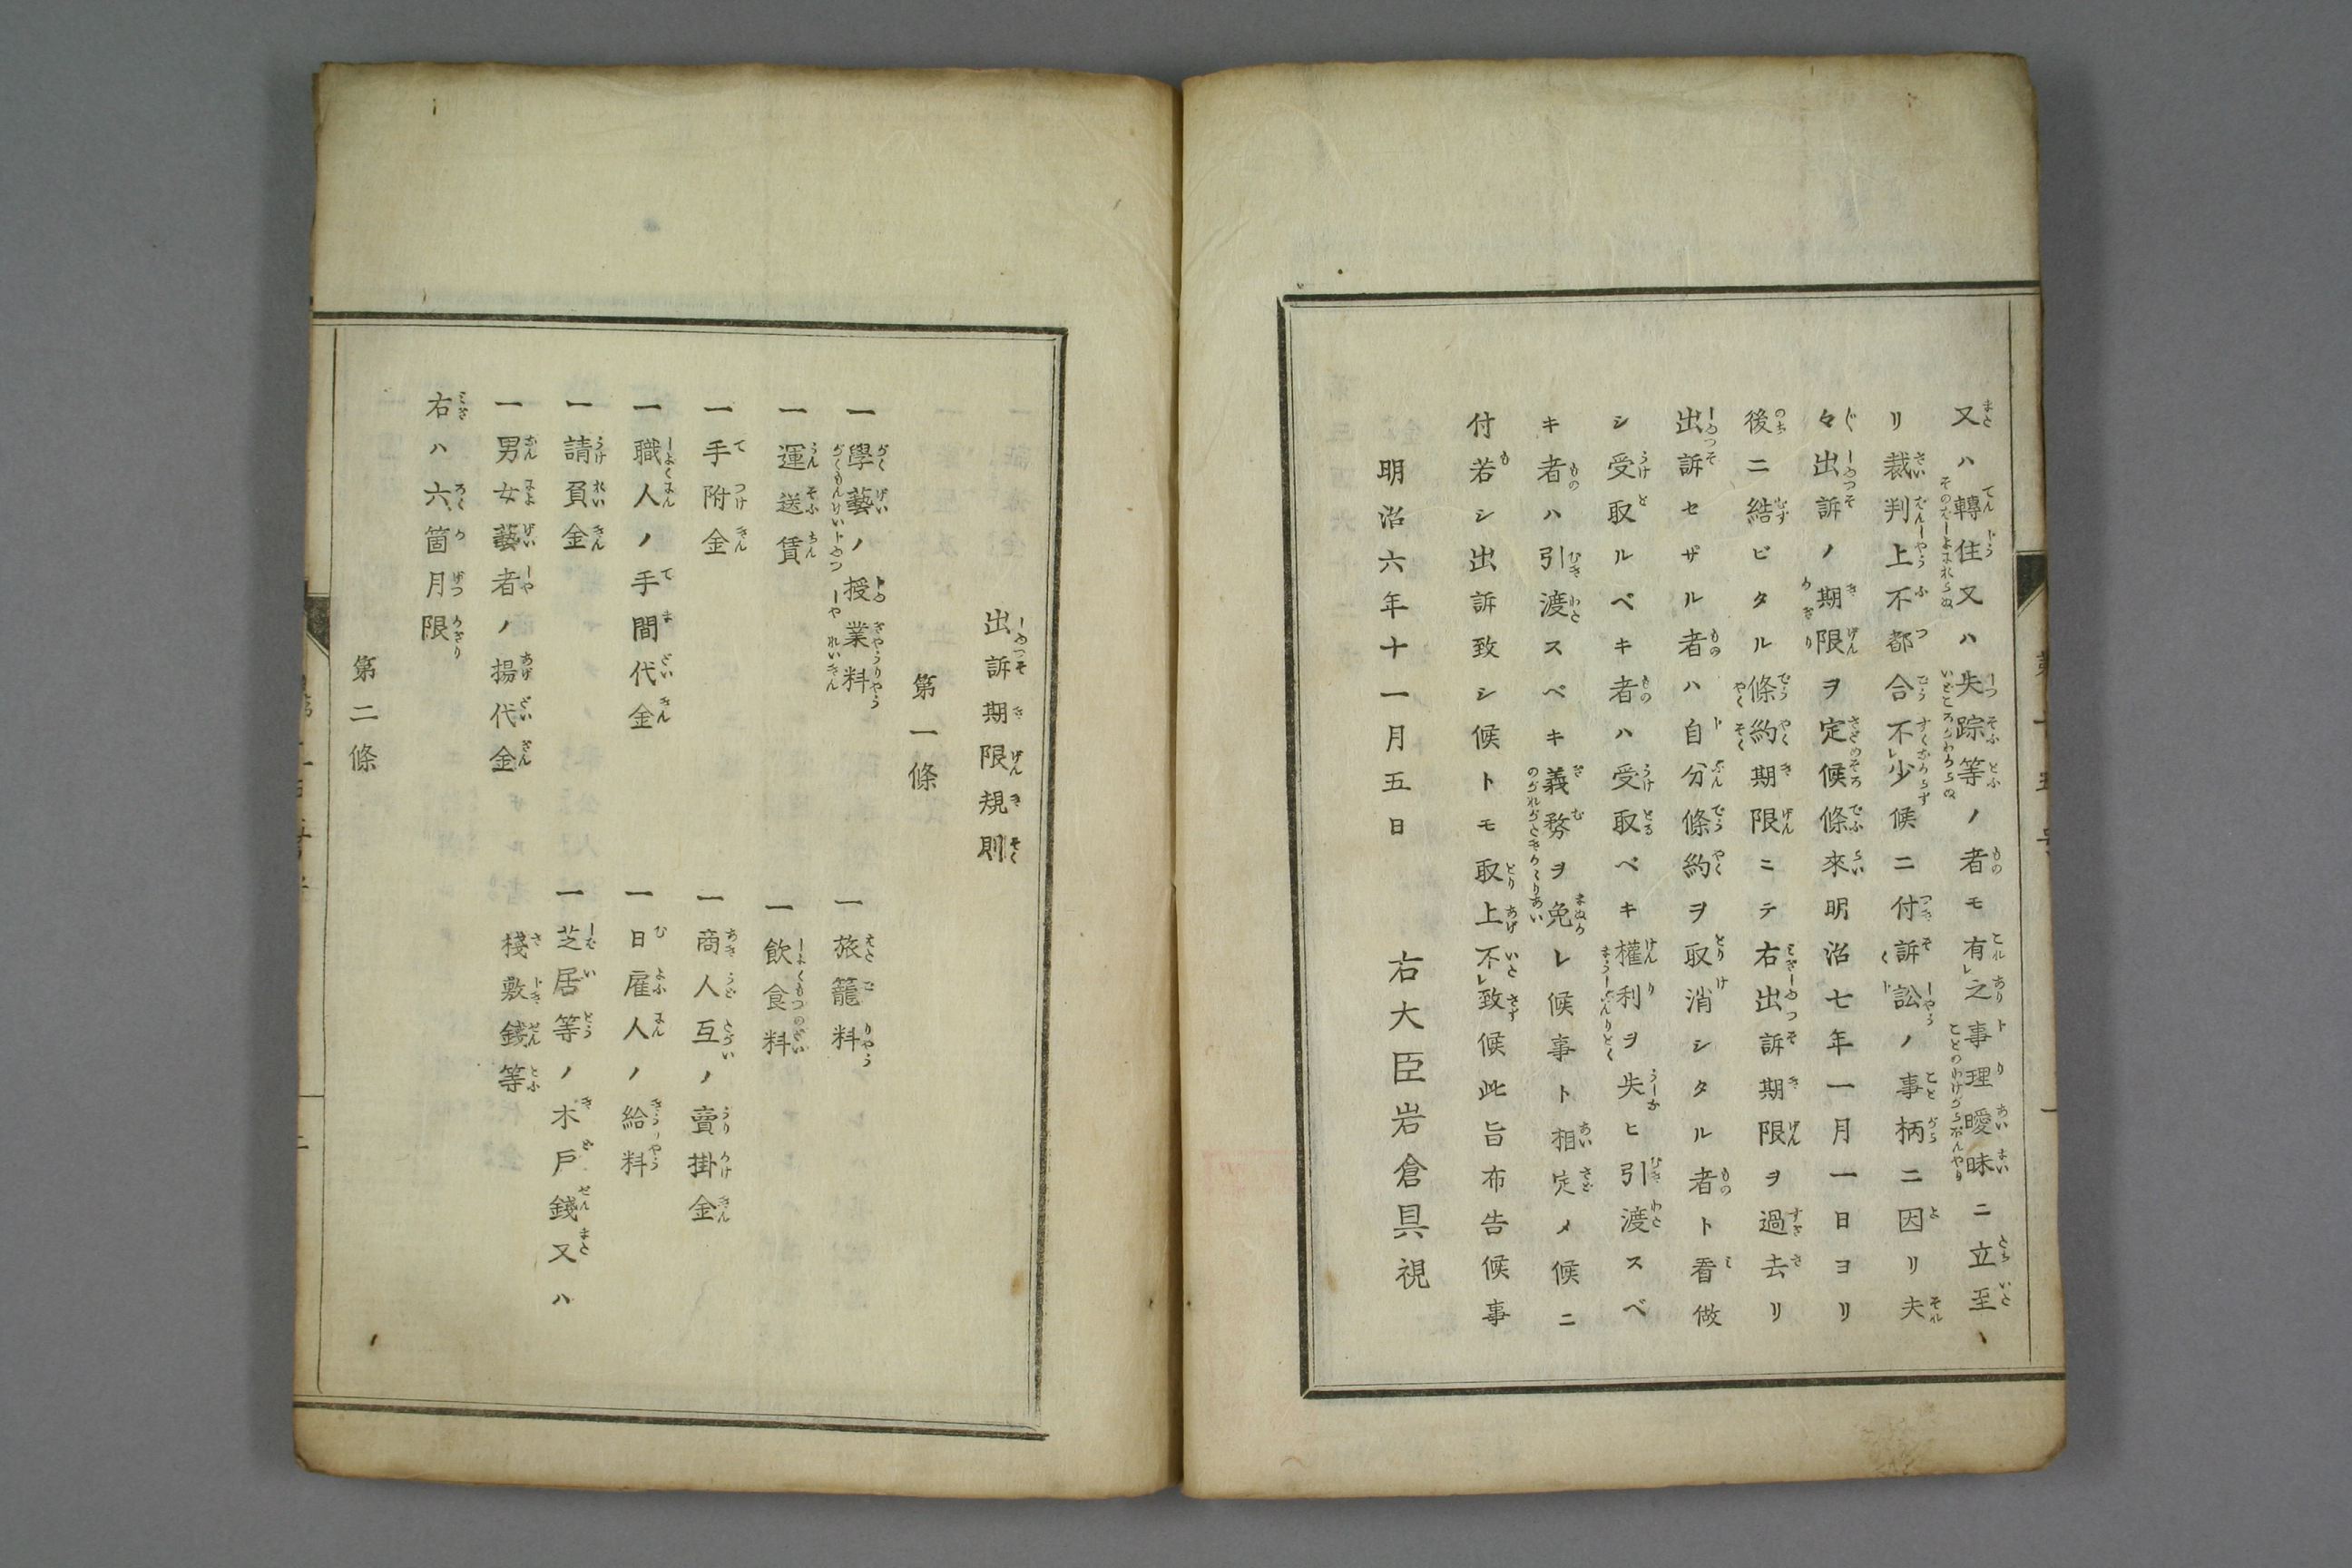 又ハ轉住又ハ失踪等ノ者モ有レ之事理曖昧ニ立至
リ裁判上不都合不レ少候ニ付訴訟ノ事柄ニ因リ夫
々出訴ノ期限ヲ定候條來明治七年一月一日ヨリ
後ニ結ビタル條約期限ニテ右出訴期限ヲ過去リ
出訴セザル者ハ自分條約ヲ取消シタル者ト看做
シ受取ルベキ者ハ受取ベキ權利ヲ失ヒ引渡スベ
キ者ハ引渡スベキ義務ヲ免レ候事ト相定メ候ニ
付若シ出訴致シ候トモ取上不レ致候此旨布告候事
明治六年十一月五日
右大臣岩倉具視
出訴期限規則
第一條
一學藝ノ授業料
一旅籠料
一運送賃
一飲食料
一手附金
一商人互ノ賣掛金
一職人ノ手間代金
一日雇人ノ給料
一請負金
一芝居等ノ木戶錢又ハ
棧敷錢等
一男女藝者ノ揚代金
右ハ六箇月限
第二條